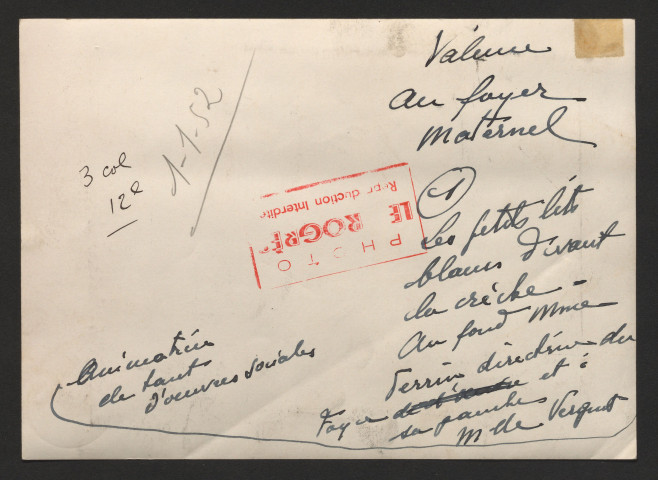 Valence
au foyer
maternel
1
Les petits lits
blancs devant
la crèche -
Au fond Mme
Perrin directrice du
Foyer et à
sa gauche
Mlle
Animatrice
de tant
d'oeuvres sociales
3 col
12e
1-1-52
PHOTO
LE ROGRE
Reproduction Interdite